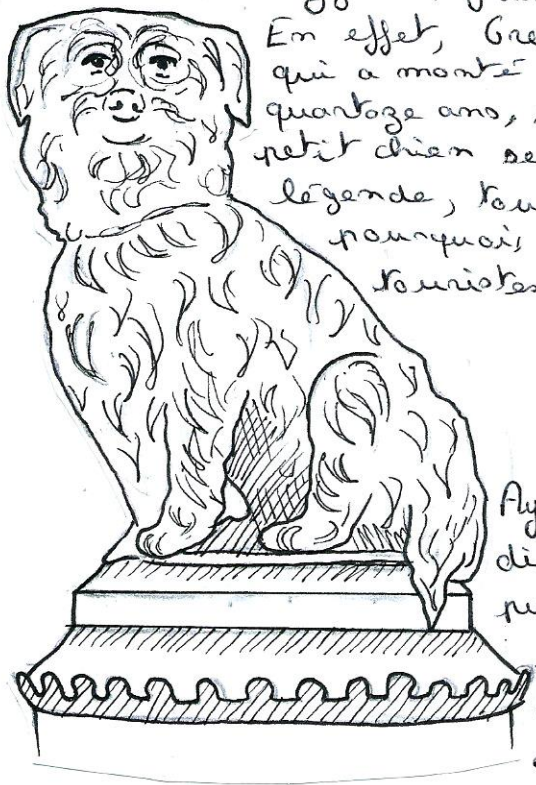 En effet, Gre
qui a monté
quatorze ans,
petit chien se
légende, tou
pourquoi,
touristes
Ay
di
pu